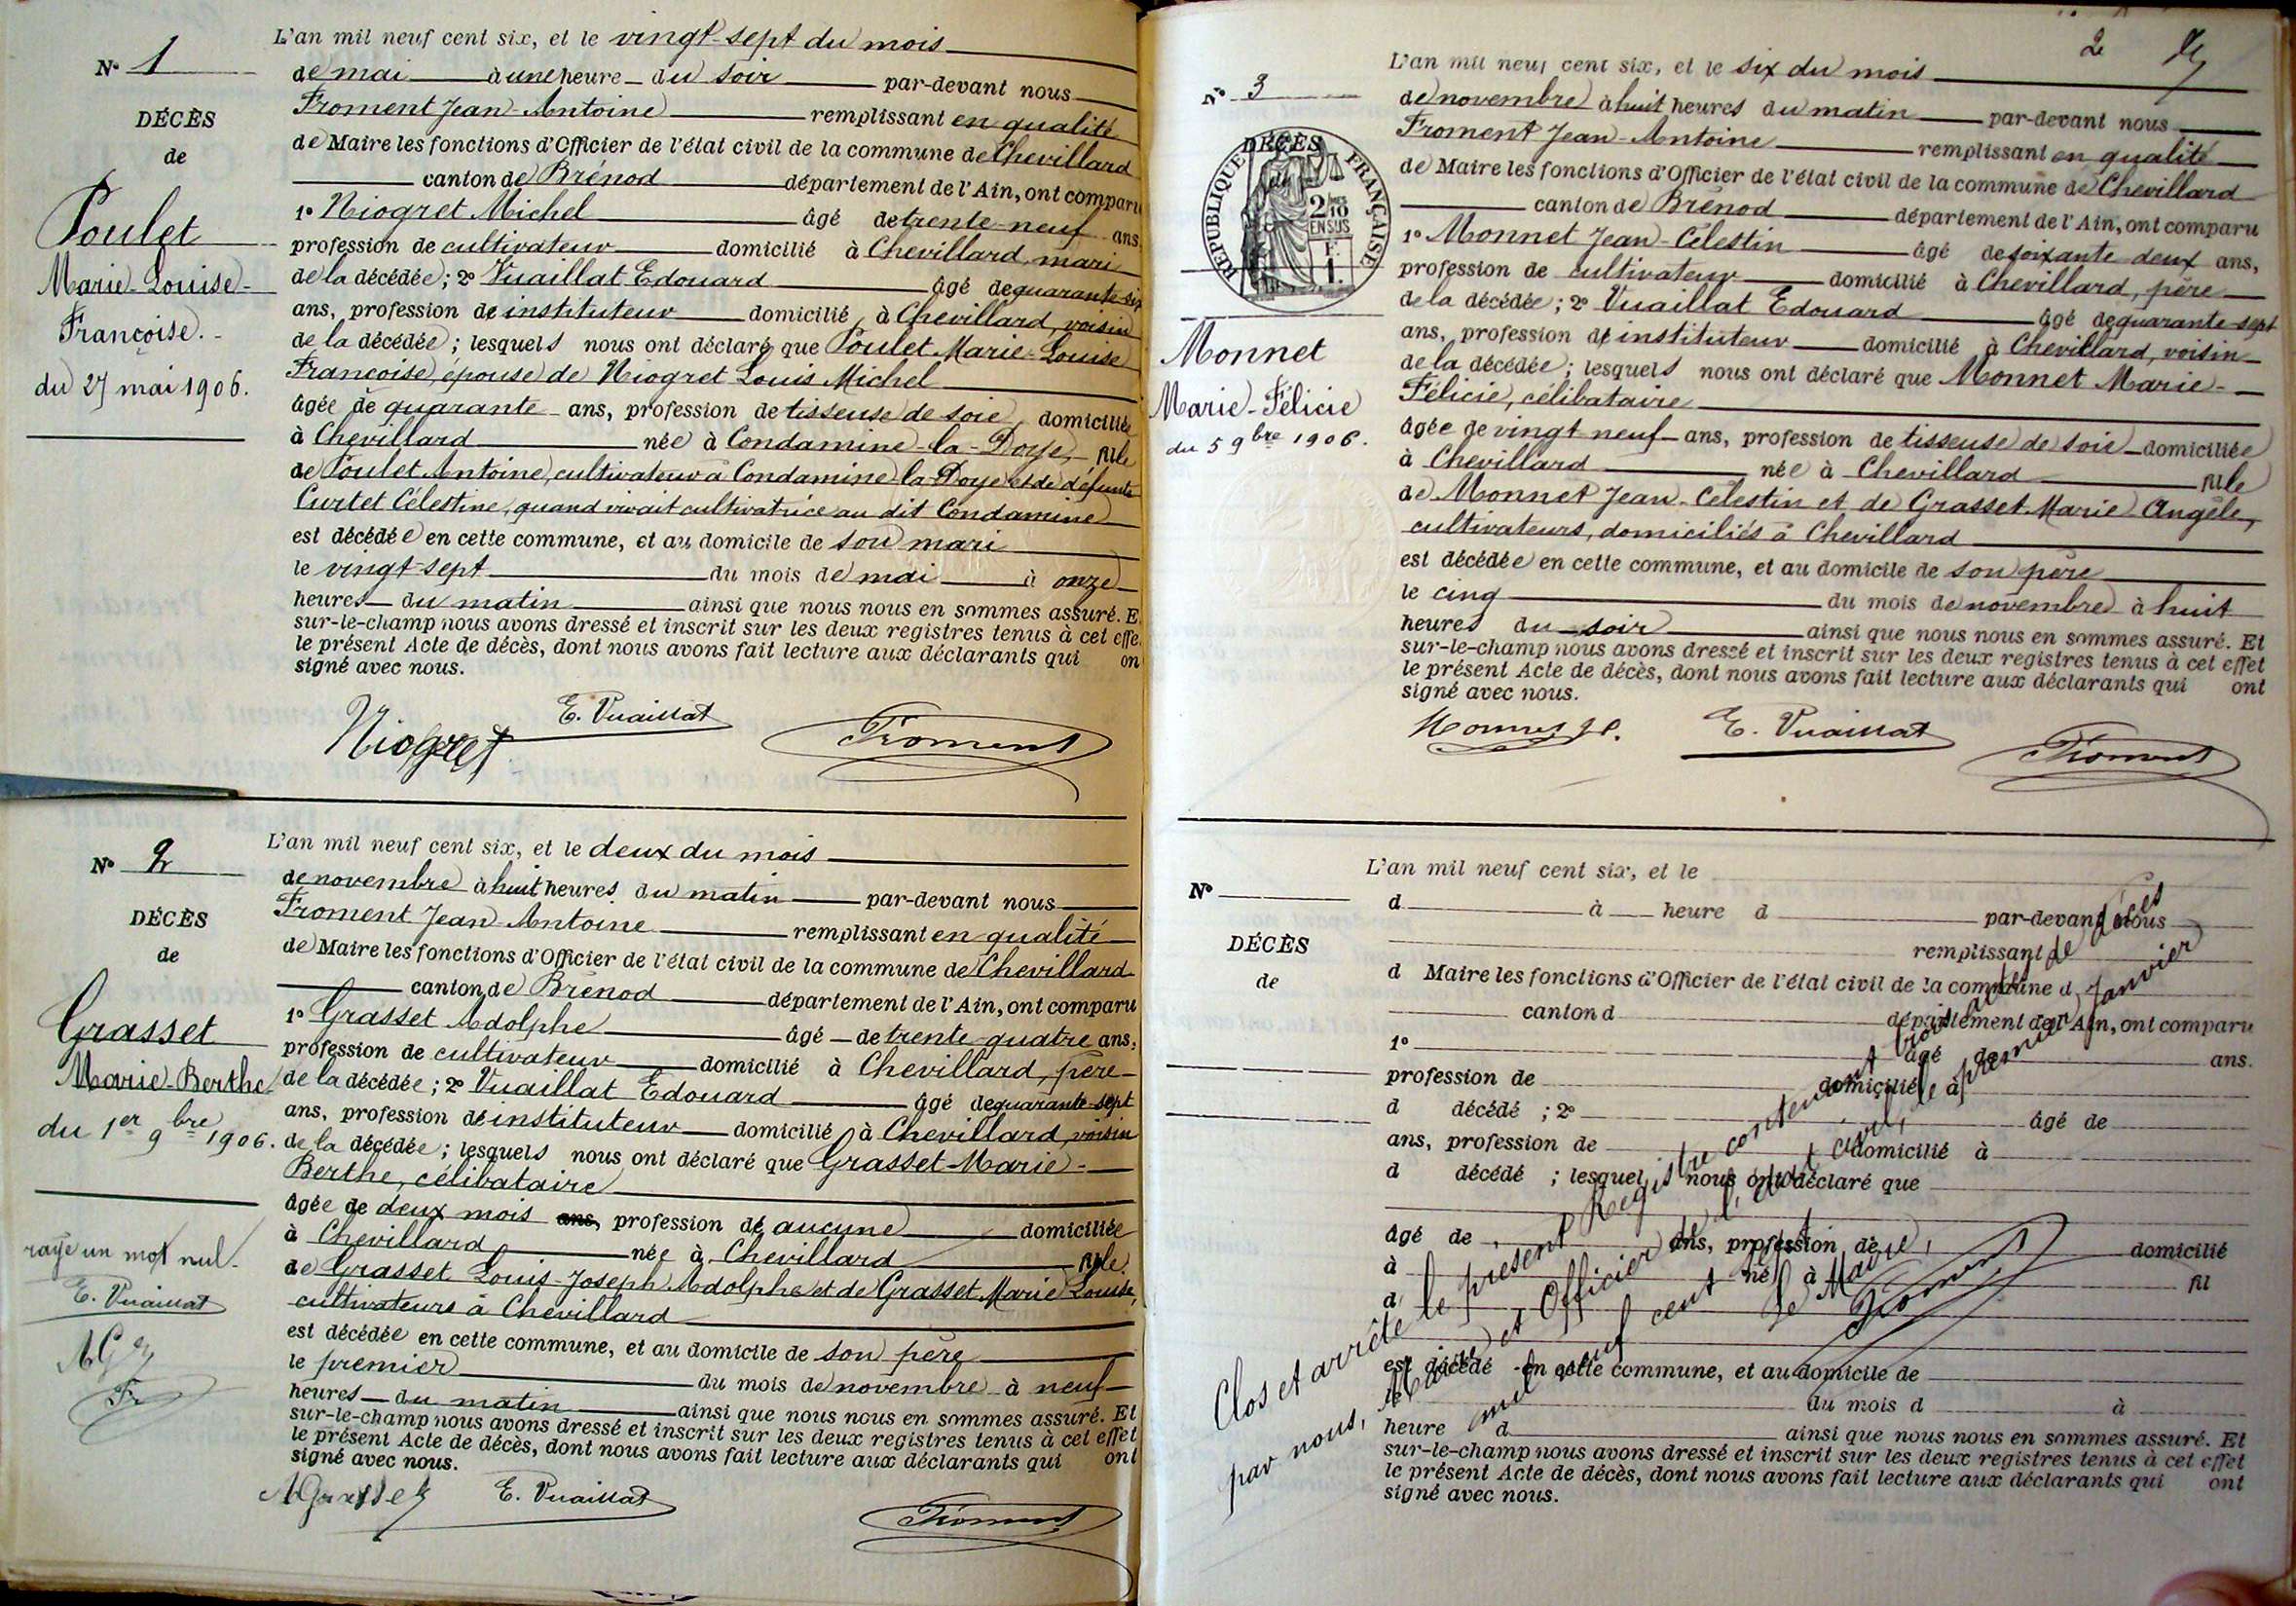 L'an mil neuf cent six, et le vingt-sept du mois
N° 1
de mai à une heure du soir par-devant nous
Froment Jean-Antoine remplissant en qualité
DÉCÈS
de Maire les fonctions d'Officier de l'état civil de la commune de Chevillard
de
canton de Brénod département de l'Ain, ont comparu
Poulet
1° Niogret Michel âgé de trente-neuf ans,
profession de cultivateur domicilié à Chevillard, mari
Marie-Louise-
de la décédée ; 2° Vuaillat Edouard âgé de quarante-six
ans, profession de instituteur domicilié à Chevillard, voisin
Françoise.
de la décédée ; lesquels nous ont déclaré que Poulet Marie-Louise
Françoise, épouse de Niogret Louis Michel
du 27 mai 1906.
âgée de quarante ans, profession de tisseuse de soie, domiciliée
à Chevillard née à Condamine-la-Doye, fille
de Poulet Antoine, cultivateur à Condamine la Doye et de défunte
Curtet Célestine, quand vivait cultivatrice au dit Condamine
est décédée en cette commune, et au domicile de son mari
le vingt-sept du mois de mai à onze
heures du matin ainsi que nous nous en sommes assuré. E
sur-le-champ nous avons dressé et inscrit sur les deux registres tenus à cet effe
le présent Acte de décès, dont nous avons fait lecture aux déclarants qui on
signé avec nous.
Niogret E. Vuaillat Froment
L'an mil neuf cent six, et le deux du mois
N° 2
de novembre à huit heures du matin par-devant nous
Froment Jean-Antoine remplissant en qualité
DÉCÈS
de Maire les fonctions d'Officier de l'état civil de la commune de Chevillard
de
canton de Brénod département de l'Ain, ont comparu
Grasset
1° Grasset Adolphe âgé de trente-quatre ans,
profession de cultivateur domicilié à Chevillard, père
Marie-Berthe
de la décédée ; 2° Vuaillat Edouard âgé de quarante-sept
ans, profession de instituteur domicilié à Chevillard, voisin
du 1er 9bre 1906.
de la décédée ; lesquels nous ont déclaré que Grasset Marie-
Berthe, célibataire
âgée de deux mois ans, profession de aucune domiciliée
à Chevillard née à Chevillard fille
rayé un mot nul.
de Grasset Louis-Joseph Adolphe et de Grasset Marie Louise,
E. Vuaillat
cultivateurs à Chevillard
est décédée en cette commune, et au domicile de son père
AG
le premier du mois de novembre à neuf
Fr
heures du matin ainsi que nous nous en sommes assuré. Et
sur-le-champ nous avons dressé et inscrit sur les deux registres tenus à cet effet
le présent Acte de décès, dont nous avons fait lecture aux déclarants qui ont
signé avec nous.
AGrasset E. Vuaillat Froment
2
L'an mil neuf cent six, et le six du mois
N° 3
de novembre à huit heures du matin par-devant nous
Froment Jean-Antoine remplissant en qualité
DÉCÈS
de Maire les fonctions d'Officier de l'état civil de la commune de Chevillard
RÉPUBLIQUE FRANÇAISE
2 MES 10 EN SUS
canton de Brénod département de l'Ain, ont comparu
1° Monnet Jean-Célestin âgé de soixante deux ans,
profession de cultivateur domicilié à Chevillard, père
de la décédée ; 2° Vuaillat Edouard âgé de quarante-sept
ans, profession de instituteur domicilié à Chevillard, voisin
Monnet
de la décédée ; lesquels nous ont déclaré que Monnet Marie-
Marie-Félicie
Félicie, célibataire
du 5 9bre 1906.
âgée de vingt neuf ans, profession de tisseuse de soie domiciliée
à Chevillard née à Chevillard fille
de Monnet Jean-Célestin et de Grasset Marie Angèle,
cultivateurs, domiciliés à Chevillard
est décédée en cette commune, et au domicile de son père
le cinq du mois de novembre à huit
heures du soir ainsi que nous nous en sommes assuré. Et
sur-le-champ nous avons dressé et inscrit sur les deux registres tenus à cet effet
le présent Acte de décès, dont nous avons fait lecture aux déclarants qui ont
signé avec nous.
Monnet J C. E. Vuaillat Froment
L'an mil neuf cent six, et le
N°
d à heure d par-devant nous
remplissant
DÉCÈS
d Maire les fonctions d'Officier de l'état civil de la commune d
de
canton d département de l'Ain, ont comparu
1° âgé de ans.
profession de domicilié à
d décédé ; 2° âgé de
ans, profession de domicilié à
d décédé ; lesquel nous ont déclaré que
âgé de ans, profession de domicilié
à né à
d fil
est décédé en cette commune, et au domicile de
le du mois d à
heure d ainsi que nous nous en sommes assuré. Et
sur-le-champ nous avons dressé et inscrit sur les deux registres tenus à cet effet
le présent Acte de décès, dont nous avons fait lecture aux déclarants qui ont
signé avec nous.
Clos et arrêté le présent Registre contenant trois actes de décès
par nous, Maire et Officier de l'état civil, le premier Janvier
mil neuf cent sept
Le Maire,
Froment